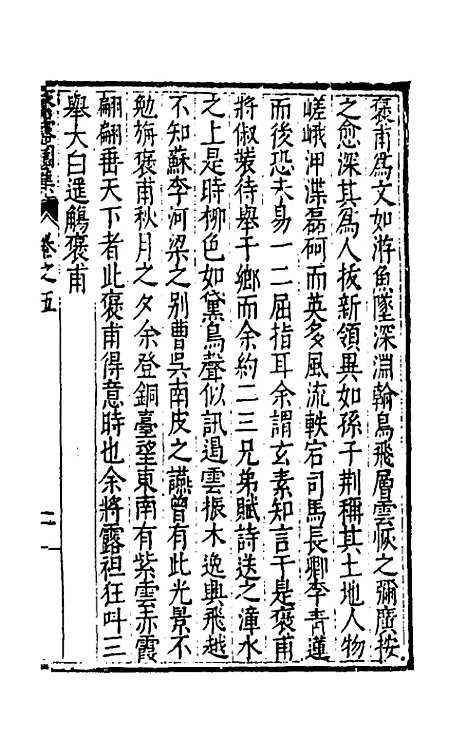 褒甫為文如游魚墜深淵翰鳥飛層雲恢之彌廣按
之愈深其為人拔新領異如孫子荆稱其土地人物
嵯峨泙渫磊砢而英多風流軼宕司馬長卿李青蓮
而後恐未易一二屈指耳余謂玄素知言于是褒甫
將俶裝待舉于鄉而余約二三兄弟賦詩送之漳水
之上是時柳色如黛鳥聲似訊遏雲振木逸輿飛越
不知蘇李河梁之別曹吳南皮之讌曾有此光景不
勉旃褒甫秋月之夕余登銅臺望東南有紫雲赤霞
翩翩垂天下者此褒甫得意時也余將露袒狂叫三
舉大白遥觴褒甫
卷之五